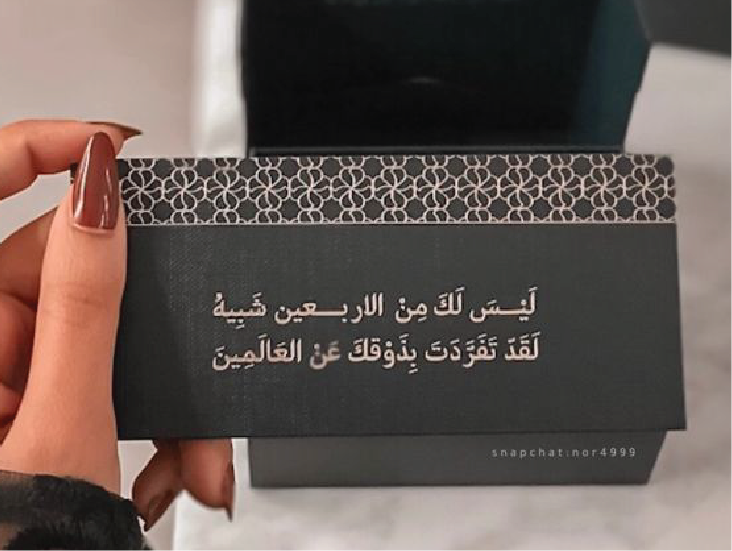 لَيْـسَ لَكَ مِنْ الاربـعين شَبِيهُ
لَقَدّ تَفَرَّدَتَ بِذَوْقكَ عَنْ العَالَمِينَ
snapchat:nor4999